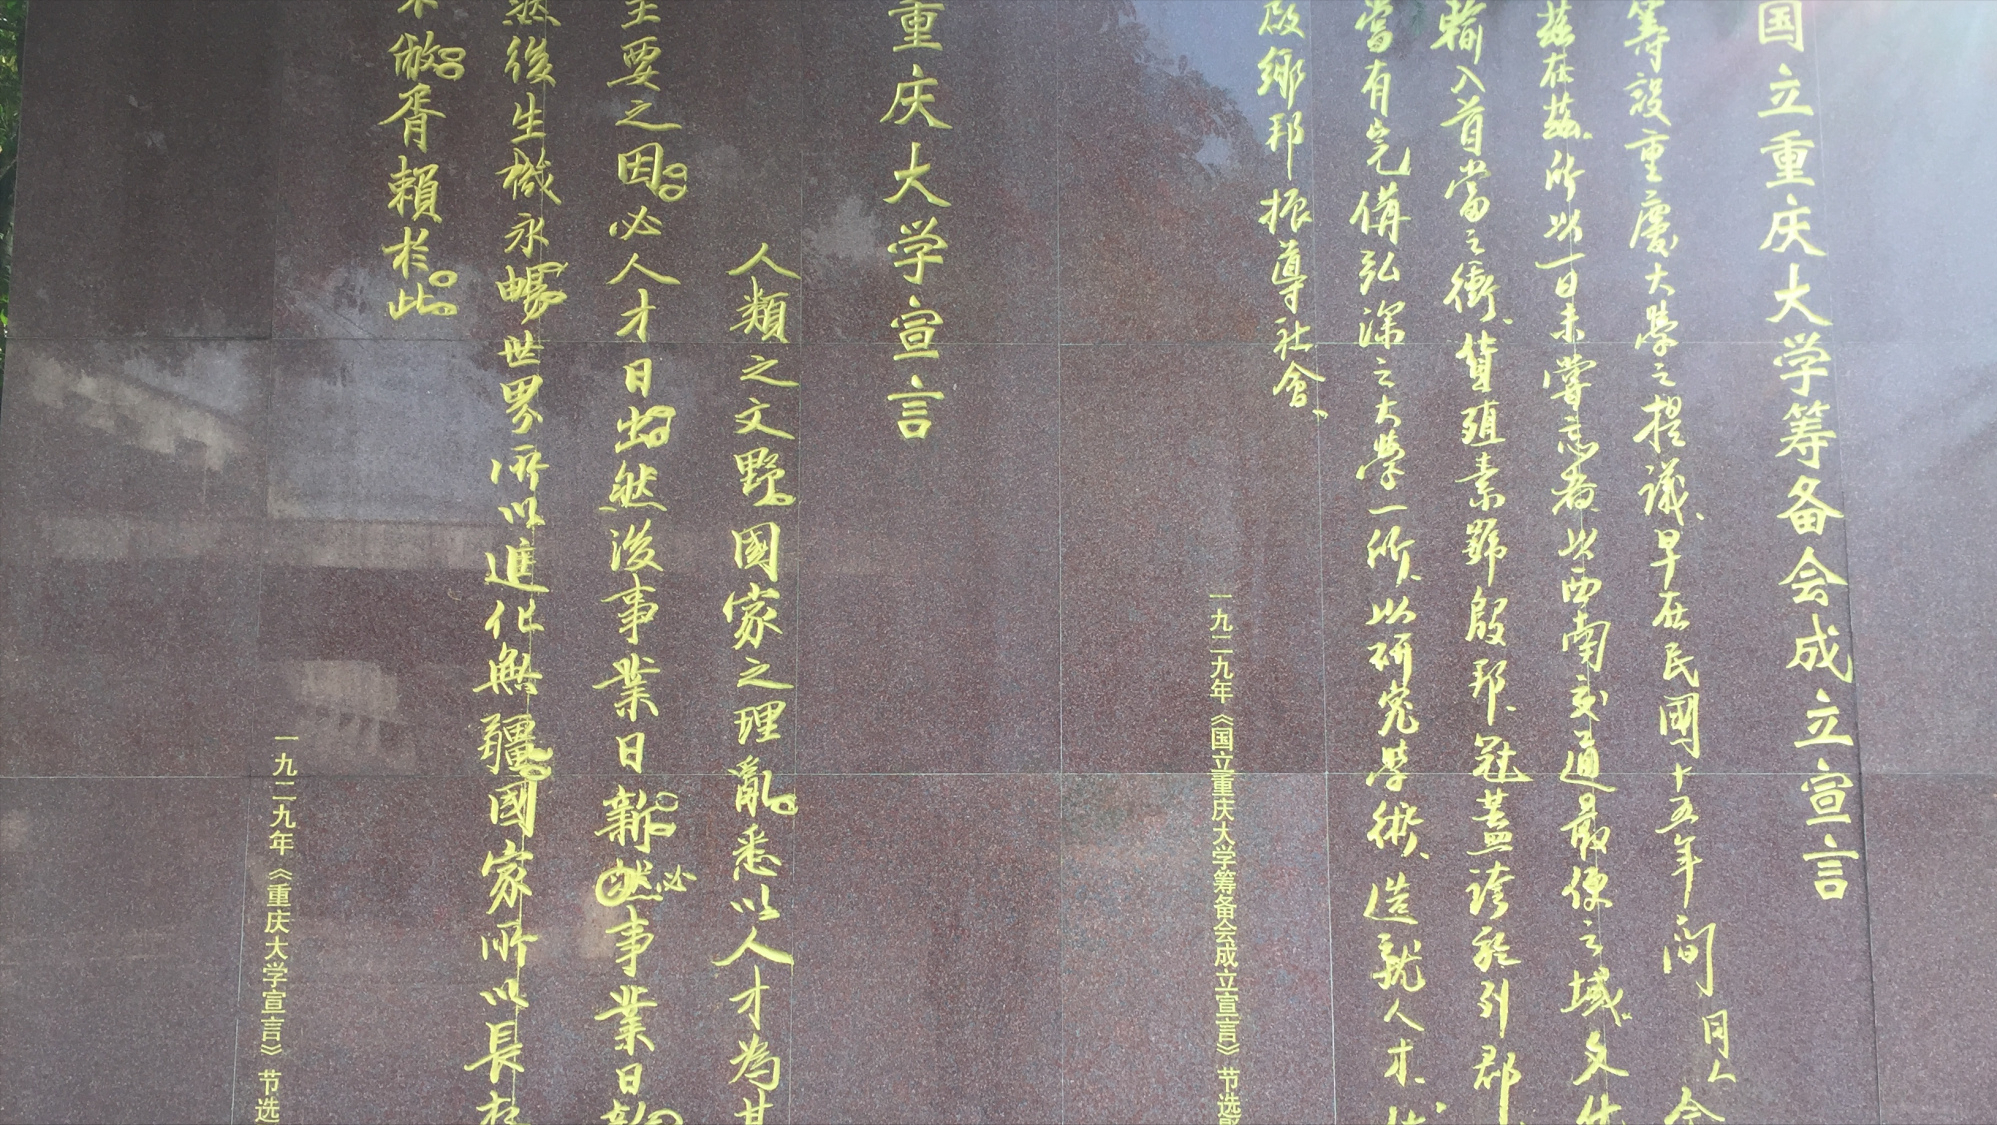 国立重庆大学筹备会成立宣言
筹設重慶大學之提議、早在民國十五年間同人會
茲在茲、所以一日未嘗忘者、以西南交通最便之域、文化
輸入首當之衝、貨殖素號殷邦、冠蓋誇於列郡
當有完備弘深之大學一所、以研究學術、造就人才、
殷鄉邦、振導社會、
一九二九年《国立重庆大学筹备会成立宣言》节选
重庆大学宣言
人類之文野。國家之理亂。悉以人才為其
主要之因。必人才日出。然後事業日新。必事業日新
然後生機永暢。世界所以進化無疆。國家所以長
不敝。胥賴於。此。
一九二九年《重庆大学宣言》节选